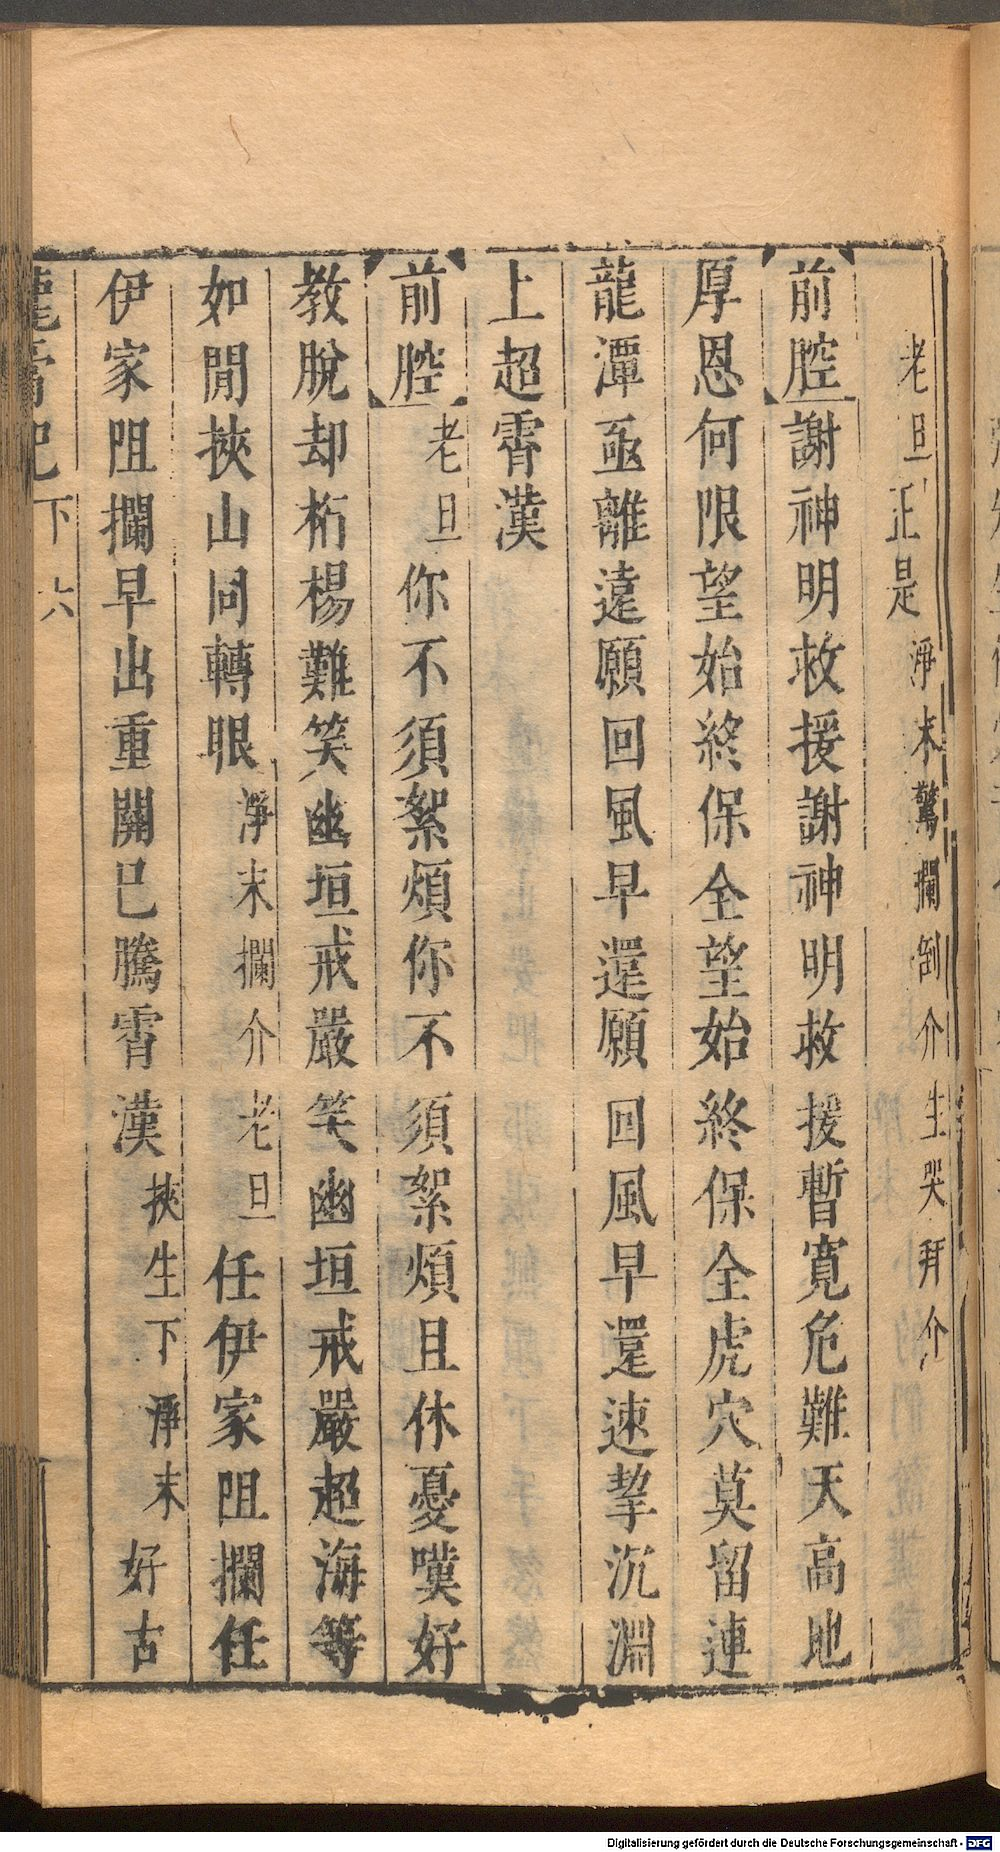 老旦正是淨末驚攔倒介生哭拜介
前腔謝神明救援謝神明救援暫寬危難天高地
厚恩何限望始終保全望始終保全虎穴莫留連
龍潭亟離遠願回風早還願回風早還速挈沉淵
上超霄漢
前腔老旦你不須絮煩你不須絮煩且休憂嘆好
教脫却桁楊難笑幽垣戒嚴笑幽垣戒嚴超海等
如閒挾山同轉眼淨末攔介老旦任伊家阻攔任
伊家阻攔早出重關已騰霄漢挾生下淨末好古
記下六
Digitalisierung gefördert durch die Deutsche Forschungsgemeinschaft - DFG